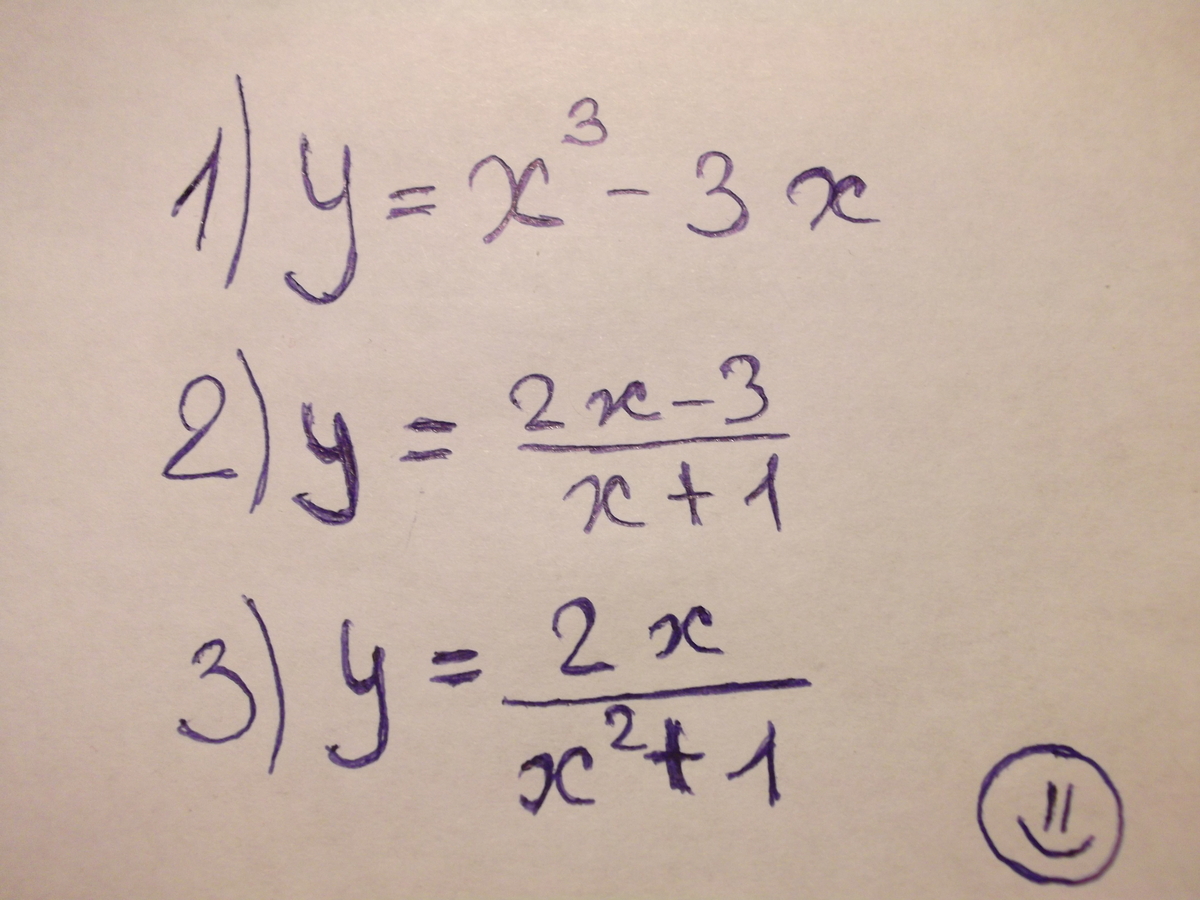 1) y = x³ - 3x
2) y = (2x-3)/(x+1)
3) y = 2x/(x²+1)